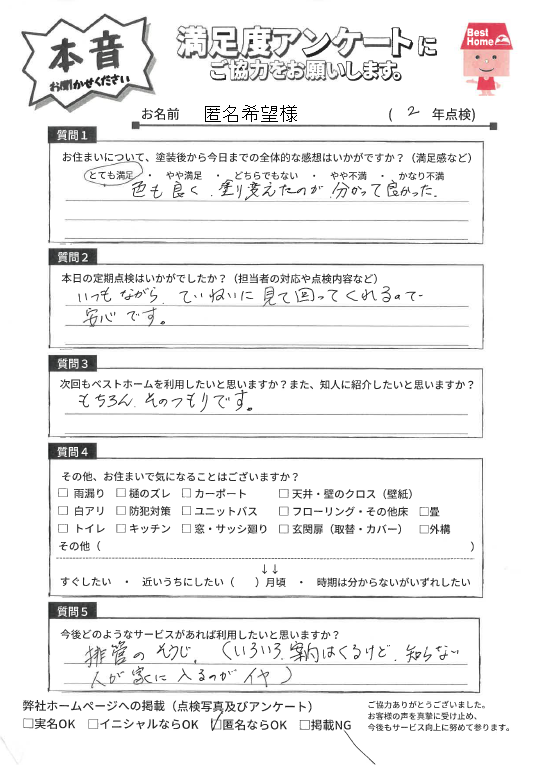 本音
お聞かせください
満足度アンケートに
ご協力をお願いします。
Best
Home
お名前 匿名希望様 ( 2 年点検)
質問1
お住まいについて、塗装後から今日までの全体的な感想はいかがですか?(満足感など)
とても満足 ・ やや満足 ・ どちらでもない ・ やや不満 ・ かなり不満
色も良く、塗り変えたのが、分かって良かった。
質問2
本日の定期点検はいかがでしたか?(担当者の対応や点検内容など)
いつもながら、ていねいに見て回ってくれるので
安心です。
質問3
次回もベストホームを利用したいと思いますか?また、知人に紹介したいと思いますか?
もちろん、そのつもりです。
質問4
その他、お住まいで気になることはございますか?
□ 雨漏り □ 樋のズレ □ カーポート □ 天井・壁のクロス(壁紙)
□ 白アリ □ 防犯対策 □ ユニットバス □ フローリング・その他床 □畳
□ トイレ □ キッチン □ 窓・サッシ廻り □ 玄関扉(取替・カバー) □外構
その他( )
↓↓
すぐしたい ・ 近いうちにしたい( )月頃 ・ 時期は分からないがいずれしたい
質問5
今後どのようなサービスがあれば利用したいと思いますか?
排管のそうじ、(いろいろ、案内はくるけど、知らない
人が家に入るのがイヤ)
弊社ホームページへの掲載(点検写真及びアンケート)
□実名OK □イニシャルならOK ☑匿名ならOK □掲載NG
ご協力ありがとうございました。
お客様の声を真摯に受け止め、
今後もサービス向上に努めて参ります。